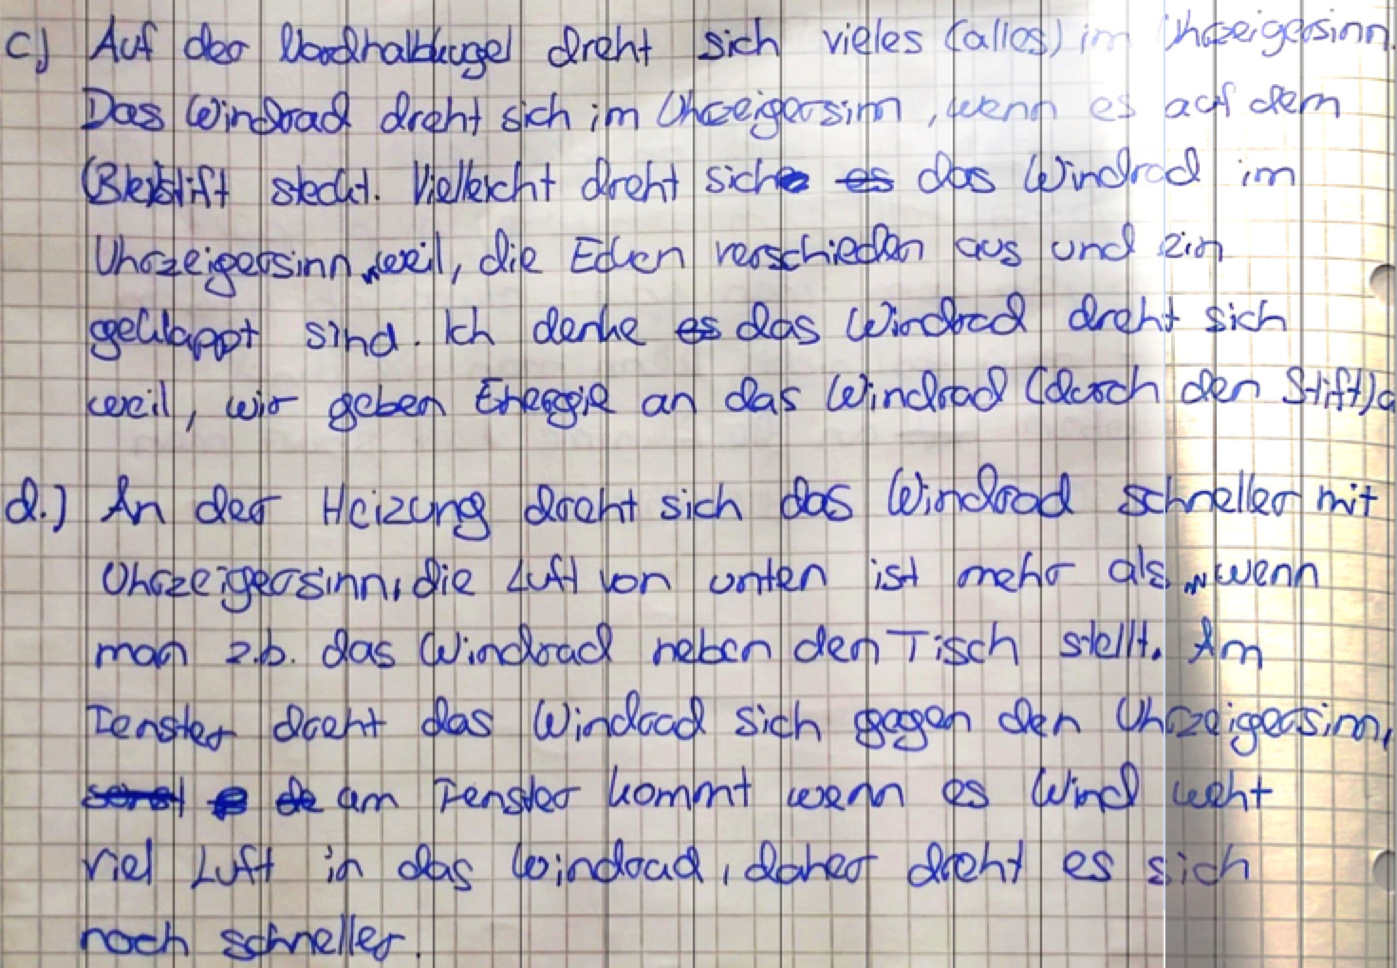 c) Auf der Nordhalbkugel dreht sich vieles (alles) im Uhrzeigersinn.
Das Windrad dreht sich im Uhrzeigersinn, wenn es auf dem
Bleistift steckt. Vielleicht dreht sich es das Windrad im
Uhrzeigersinn weil, die Ecken verschieden aus und ein
geklappt sind. Ich denke es das Windrad dreht sich
weil, wir geben Energie an das Windrad (durch den Stift)
d.) An der Heizung dreht sich das Windrad schneller mit
Uhrzeigersinn, die Luft von unten ist mehr als wenn
man z.b. das Windrad neben den Tisch stellt. Am
Fenster dreht das Windrad sich gegen den Uhrzeigersinn,
am Fenster kommt wenn es Wind weht
viel Luft in das Windrad, daher dreht es sich
noch schneller.